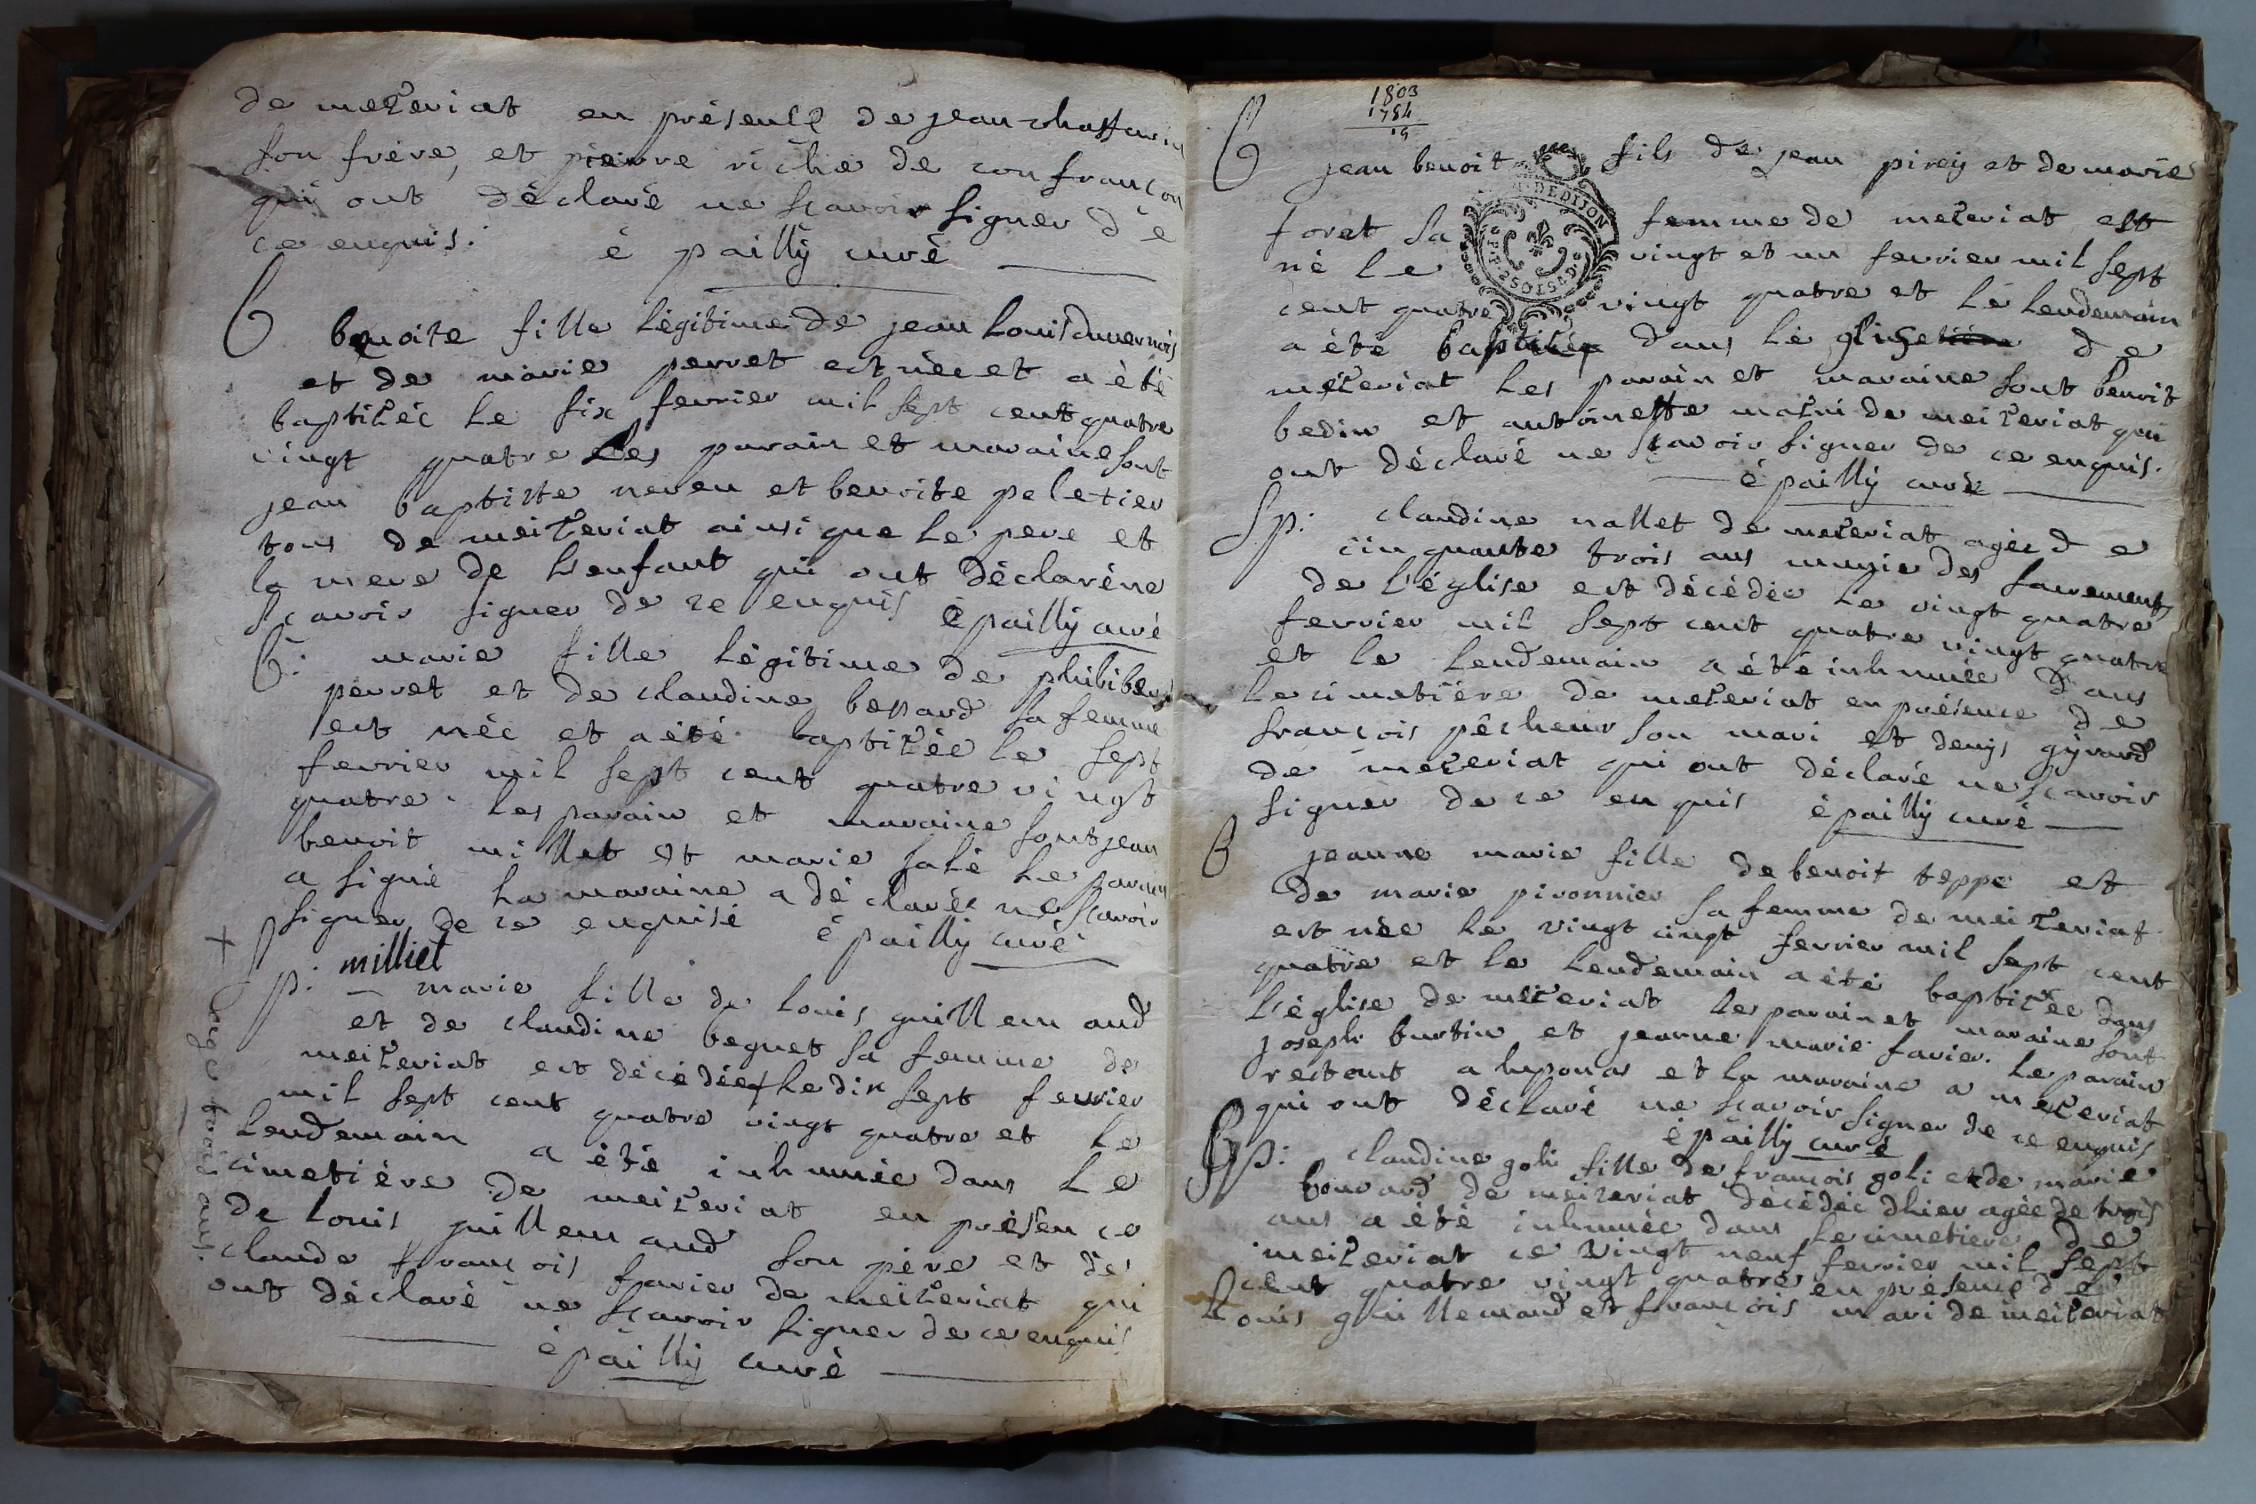 de mezeriat en présence de jean
son frère, et pierre riche de confrançon
qui ont déclaré ne scavoir signer de
ce enquis. è pailly curé
B benoite fille légitime de jean Louis duvernois
et de marie perret est née et a été
baptizée le six fevrier mil sept cent quatre
vingt quatre Les parain et maraine sont
jean baptiste neveu et benoite peletier
tous de meizeriat ainsi que le pere et
la mere de L'enfant qui ont déclaré ne
scavoir signer de ce enquis è pailly curé
B: marie fille légitime de philibert
perret et de claudine bessard sa femme
est née et a été baptizée le sept
fevrier mil sept cent quatre vingt
quatre. Les parain et maraine sont jean
benoit millet et marie le parain
a signé La maraine a déclarée ne scavoir
signer de ce enquise è pailly curé
milliet
Sp: marie fille de louis guillemaud
et de claudine beguet sa femme de
meizeriat est décédée + le dix sept fevrier
mil sept cent quatre vingt quatre et le
Lendemain a été inhumée dans le
cimetière de meizeriat en présence
de louis guillemaud son père et de
claude francois farier de meizeriat qui
ont déclaré ne scavoir signer de ce enquis
è pailly curé
+ agée de trois ans.
1803
1784
19
B jean benoit fils de jean pirey et de marie
foret sa femme de mezeriat est
DE DIJON
né le vingt et un fevrier mil sept
cent quatre vingt quatre et le lendemain
a été baptizé dans de
mezeriat les parain et maraine sont benoit
bedin et antoinette de meizeriat qui
ont déclaré ne scavoir signer de ce enquis.
è pailly curé
Sp: claudine nallet de mezeriat agée de
cinquante trois ans munie des sacrements
de l'église est décédée le vingt quatre
fevrier mil sept cent quatre vingt quatre
et le lendemain a été inhumée dans
le cimetière de mezeriat en présence de
francois pécheur son mari et denys gyraud
de mezeriat qui ont déclaré ne scavoir
signer de ce enquis è pailly curé
B jeanne marie fille de benoit teppe et
de marie pironnier sa femme de meizeriat
est née le vingt cinqt fevrier mil sept cent
quatre et le lendemain a été baptizée dans
l'église de mezeriat les parain et maraine sont
joseph burtin et jeanne marie farier. le parain
restant a luponas et la maraine a mezeriat
qui ont déclaré ne scavoir signer de ce enquis
è pailly curé
Sp: claudine goli fille de francois goli et de marie
bouvard de meizeriat décédée d'hier agée de trois
ans a été inhumée dans le cimetiere de
meizeriat ce vingt neuf fevrier mil sept
cent quatre vingt quatre en présence de
Louis guillemaud et francois mari de meizeriat